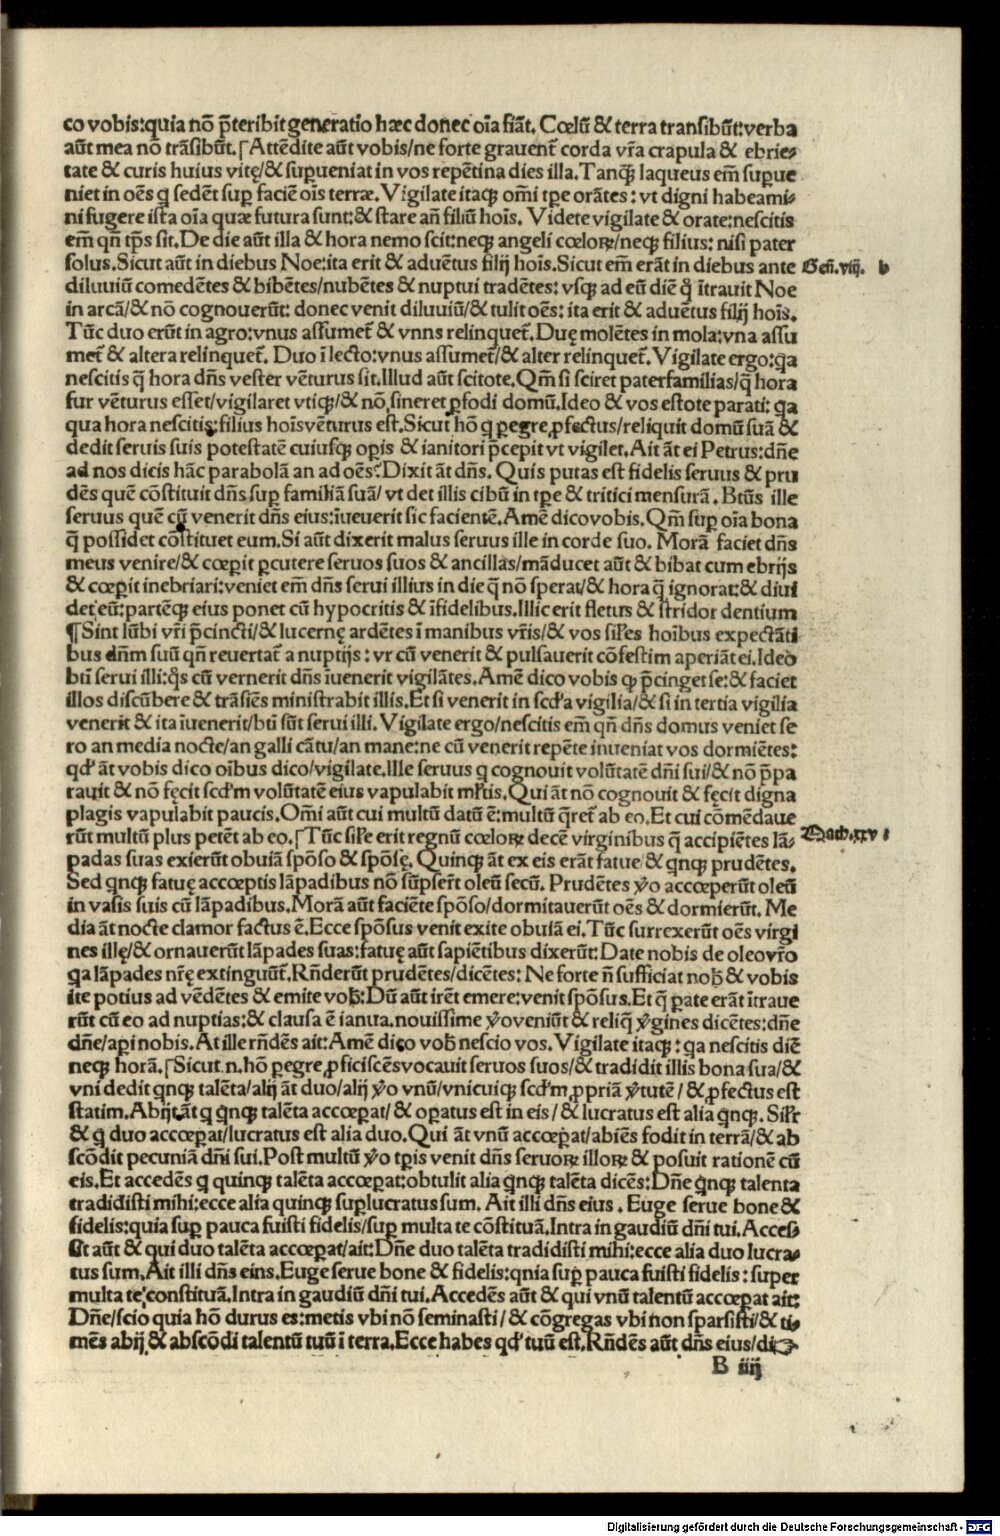 co vobis:quia nō p̄teribit generatio hæc donec oīa fiāt. Cœlū & terra transibūt:verba
aūt mea nō trāsibūt.⌠Attēdite aūt vobis/ne forte grauent̄ corda vr̄a crapula & ebrie⸗
tate & curis huius vitę/& supueniat in vos repētina dies illa.Tanq̄ laqueus em̄ supue
niet in oēs q sedēt sup faciē oīs terræ. Vigilate itaq; om̄i tpe orātes: vt digni habeami⸗
ni fugere ista oīa quæ futura sunt:& stare an̄ filiū hoīs. Videte vigilate & orate:nescitis
em̄ qn̄ tp̄s sit.De die aūt illa & hora nemo scit:neq; angeli cœloꝝ/neq; filius: nisi pater
solus.Sicut aūt in diebus Noe:ita erit & aduētus filij hoīs.Sicut em̄ erāt in diebus ante
Gen̄.vij. b
diluuiū comedētes & bibētes/nubētes & nuptui tradētes: vsq; ad eū diē q̄ ītrauit Noe
in arcā/& nō cognouerūt: donec venit diluuiū/& tulit oēs: ita erit & aduētus filij hoīs.
Tūc duo erūt in agro:vnus assumet̄ & vnns relinquet̄. Duę molētes in mola:vna assu
met̄ & altera relinquet̄. Duo ī lecto:vnus assumet̄/& alter relinquet̄. Vigilate ergo:qa
nescitis q̄ hora dn̄s vester vēturus sit.Illud aūt scitote.Qm̄ si sciret paterfamilias/q̄ hora
fur vēturus esset/vigilaret vtiq;/& nō sineret ꝑfodi domū.Ideo & vos estote parati: qa
qua hora nescitis:filius hoīs vēturus est.Sicut hō q ꝑegre ꝓfectus/reliquit domū suā &
dedit seruis suis potestatē cuiusq; oꝑis & ianitori p̄cepit vt vigilet. Ait āt ei Petrus:dn̄e
ad nos dicis hāc parabolā an ad oēs?Dixit āt dn̄s. Quis putas est fidelis seruus & pru
dēs quē cōstituit dn̄s sup familiā suā/ vt det illis cibū in tpe & tritici mensurā. Btūs ille
seruus quē cū venerit dn̄s eius:īueuerit sic facientē.Amē dico vobis.Qm̄ sup oīa bona
q̄ possidet cōstituet eum.Si aūt dixerit malus seruus ille in corde suo. Morā faciet dn̄s
meus venire/& cœpit ꝑcutere seruos suos & ancillas/māducet aūt & bibat cum ebrijs
& cœpit inebriari:veniet em̄ dn̄s serui illius in die q̄ nō sperat/& hora q̄ ignorat:& diui
det eū:partēq; eius ponet cū hypocritis & īfidelibus.Illic erit fletus & stridor dentium
¶Sint lūbi vr̄i p̄cincti/& lucernę ardētes ī manibus vr̄is/& vos sił̄es hoībus expectāti
bus dn̄m suū qn̄ reuertat̄ a nuptijs: vr cū venerit & pulsauerit cōfestim aperiāt ei.Ideo
bti serui illi:q̄s cū vernerit dn̄s īuenerit vigilātes.Amē dico vobis qꝫ p̄cinget se:& faciet
illos discūbere & trāsiēs ministrabit illis.Et si venerit in scd'a vigilia/& si in tertia vigilia
venerit & ita īuenerit/bti sūt serui illi. Vigilate ergo/nescitis em̄ qn̄ dn̄s domus veniet se
ro an media nocte/an galli cātu/an mane:ne cū venerit repēte inueniat vos dormiētes:
qd' āt vobis dico oībus dico/vigilate.Ille seruus q cognouit volūtatē dn̄i sui/& nō p̄pa
rauit & nō fęcit scd'm volūtatē eius vapulabit młtis.Qui āt nō cognouit & fęcit digna
plagis vapulabit paucis. Om̄i aūt cui multū datū ē:multū q̄ret̄ ab eo.Et cui cōmēdaue
rūt multū plus petēt ab eo.⌠Tūc sił̄e erit regnū cœloꝝ decē virginibus q̄ accipiētes lā⸗
Math.xxv
padas suas exierūt obuiā spōso & spōsę. Quinq; āt ex eis erāt fatue & qnq; prudētes.
Sed qnq; fatuę accœptis lāpadibus nō sūpser̄t oleū secū. Prudētes ꝟo accœperūt oleū
in vasis suis cū lāpadibus.Morā aūt faciēte spōso/dormitauerūt oēs & dormierūt. Me
dia āt nocte clamor factus ē.Ecce spōsus venit exite obuiā ei. Tūc surrexerūt oēs virgi
nes illę/& ornauerūt lāpades suas:fatuę aūt sapiētibus dixerūt:Date nobis de oleo vr̄o
qa lāpades nr̄ę extinguūt̄.Rn̄derūt prudētes/dicētes: Ne forte n̄ sufficiat nob̄ & vobis
ite potius ad vēdētes & emite vob̄:Dū aūt irēt emere:venit spōsus.Et q̄ ꝑate erāt ītraue
rūt cū eo ad nuptias:& clausa ē ianua.nouissime ꝟo veniūt & reliq̄ ꝟgines dicētes:dn̄e
dn̄e/aperi nobis. At ille rn̄dēs ait:Amē dico vob̄ nescio vos. Vigilate itaq; : qa nescitis diē
neq; horā.⌠Sicut.n.hō ꝑegre ꝓficiscēs vocauit seruos suos/& tradidit illis bona sua/&
vni dedit qnq; talēta/alij āt duo/alij ꝟo vnū/vnicuiq; scd'm ꝓpriā ꝟtutē/& ꝓfectus est
statim. Abijt āt q qnq; talēta accœpat/& opatus est in eis/& lucratus est alia qnq;. Sił̄r
& q duo accœpat/lucratus est alia duo. Qui āt vnū accœpat/abiēs fodit in terrā/& ab
scōdit pecuniā dn̄i sui.Post multū ꝟo tpis venit dn̄s seruoꝝ illoꝝ & posuit rationē cū
eis.Et accedēs q quinq; talēta accœpat:obtulit alia qnq; talēta dicēs:Dn̄e qnq; talenta
tradidisti mihi:ecce alia quinq; suplucratus sum. Ait illi dn̄s eius . Euge serue bone &
fidelis:quia sup pauca fuisti fidelis/sup multa te cōstituā.Intra in gaudiū dn̄i tui.Acces⸗
sit aūt & qui duo talēta accœpat/ait:Dn̄e duo talēta tradidisti mihi:ecce alia duo lucra⸗
tus sum.Ait illi dn̄s eins.Euge serue bone & fidelis:qnia sup pauca fuisti fidelis: super
multa te constituā.Intra in gaudiū dn̄i tui. Accedēs aūt & qui vnū talentū accœpat ait:
Dn̄e/scio quia hō durus es:metis vbi nō seminasti/& cōgregas vbi non sparsisti/& ti⸗
mēs abij & abscōdi talentū tuū ī terra.Ecce habes qd' tuū est.Rn̄dēs aūt dn̄s eius/di
B iiij
Digitalisierung gefördert durch die Deutsche Forschungsgemeinschaft - DFG